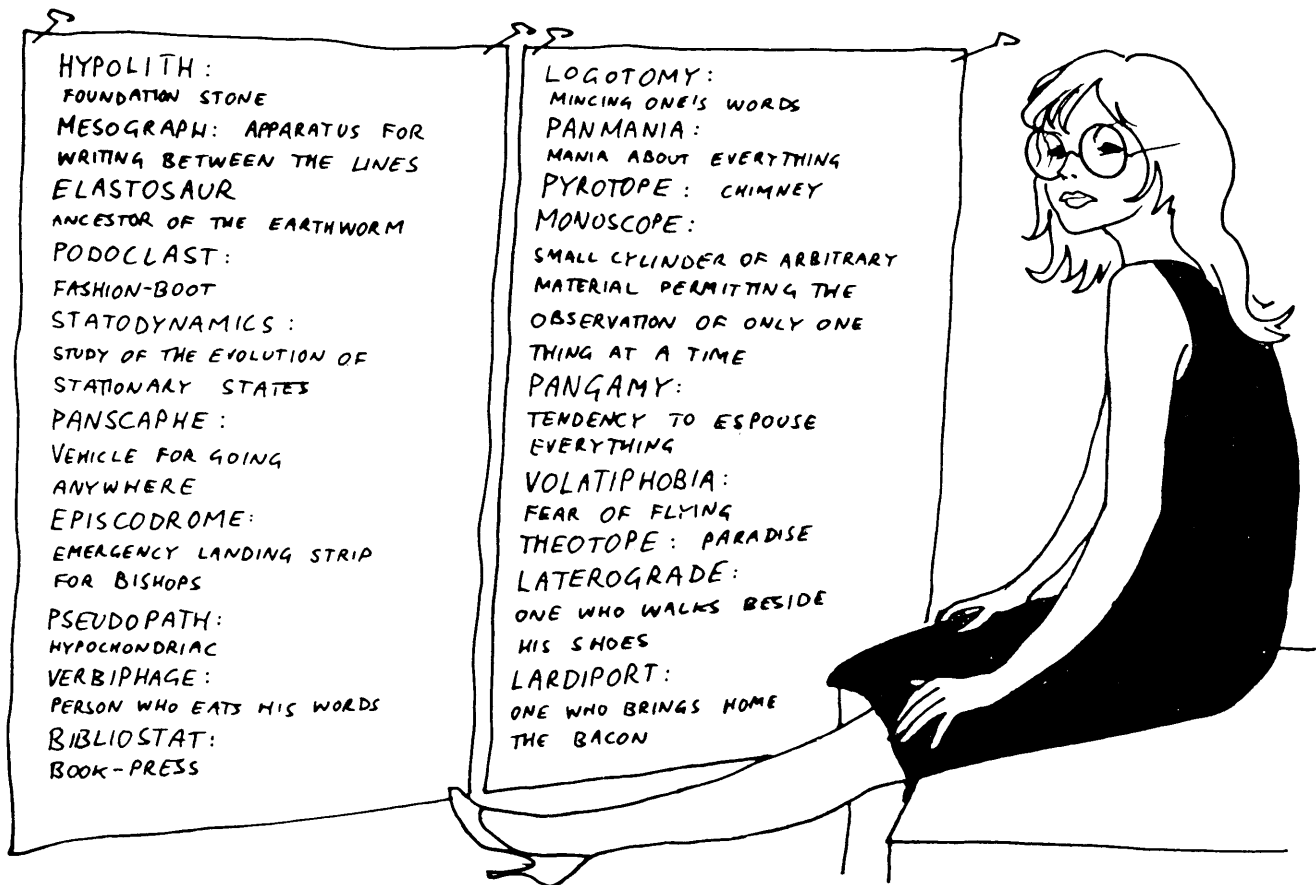 HYPOLITH:
FOUNDATION STONE
MESOGRAPH: APPARATUS FOR
WRITING BETWEEN THE LINES
ELASTOSAUR
ANCESTOR OF THE EARTHWORM
PODOCLAST:
FASHION-BOOT
STATODYNAMICS:
STUDY OF THE EVOLUTION OF
STATIONARY STATES
PANSCAPHE:
VEHICLE FOR GOING
ANYWHERE
EPISCODROME:
EMERGENCY LANDING STRIP
FOR BISHOPS
PSEUDOPATH:
HYPOCHONDRIAC
VERBIPHAGE:
PERSON WHO EATS HIS WORDS
BIBLIOSTAT:
BOOK-PRESS
LOGOTOMY:
MINCING ONE'S WORDS
PANMANIA:
MANIA ABOUT EVERYTHING
PYROTOPE: CHIMNEY
MONOSCOPE:
SMALL CYLINDER OF ARBITRARY
MATERIAL PERMITTING THE
OBSERVATION OF ONLY ONE
THING AT A TIME
PANGAMY:
TENDENCY TO ESPOUSE
EVERYTHING
VOLATIPHOBIA:
FEAR OF FLYING
THEOTOPE: PARADISE
LATEROGRADE:
ONE WHO WALKS BESIDE
HIS SHOES
LARDIPORT:
ONE WHO BRINGS HOME
THE BACON